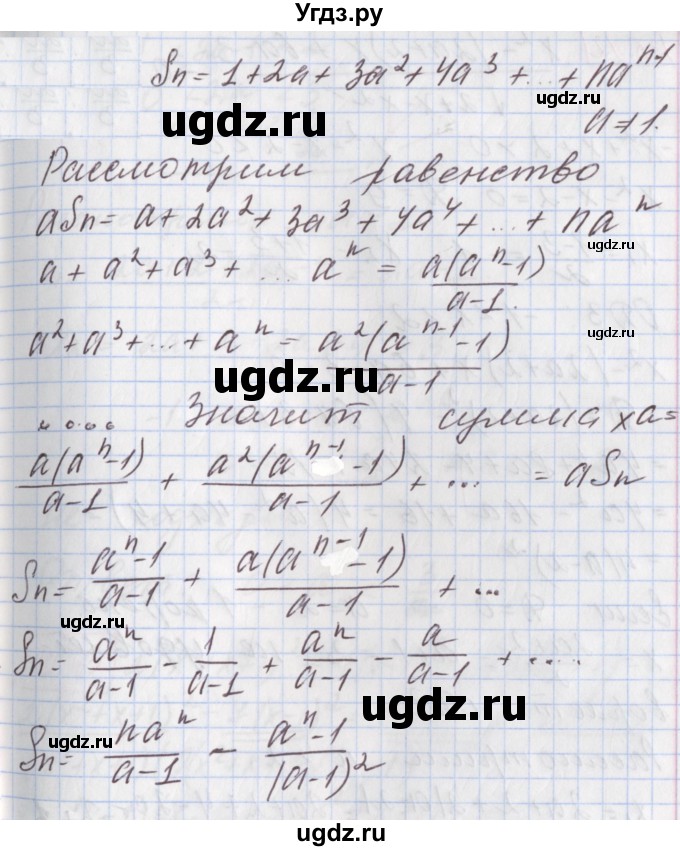 Угдз.ру
Sn = 1 + 2a + 3a² + 4a³ + ... + na^(n-1)
ugdz.ru
ugdz.ru
a ≠ 1.
Рассмотрим равенство
aSn = a + 2a² + 3a³ + 4a⁴ + ... + na^n
ugdz.ru
a + a² + a³ + ... a^n = a(a^n - 1)/(a - 1).
ugdz.ru
a² + a³ + ... + a^n = a²(a^(n-1) - 1)/(a - 1)
ugdz.ru
ugdz.ru
..... Значит сумма x a =
a(a^n - 1)/(a - 1) + a²(a^(n-1) - 1)/(a - 1) + ... = aSn
ugdz.ru
Sn = (a^n - 1)/(a - 1) + a(a^(n-1) - 1)/(a - 1) + ...
ugdz.ru
Sn = a^n/(a - 1) - 1/(a - 1) + a^n/(a - 1) - a/(a - 1) + .....
ugdz.ru
ugdz.ru
Sn = na^n/(a - 1) - (a^n - 1)/(a - 1)²
ugdz.ru
ugdz.ru